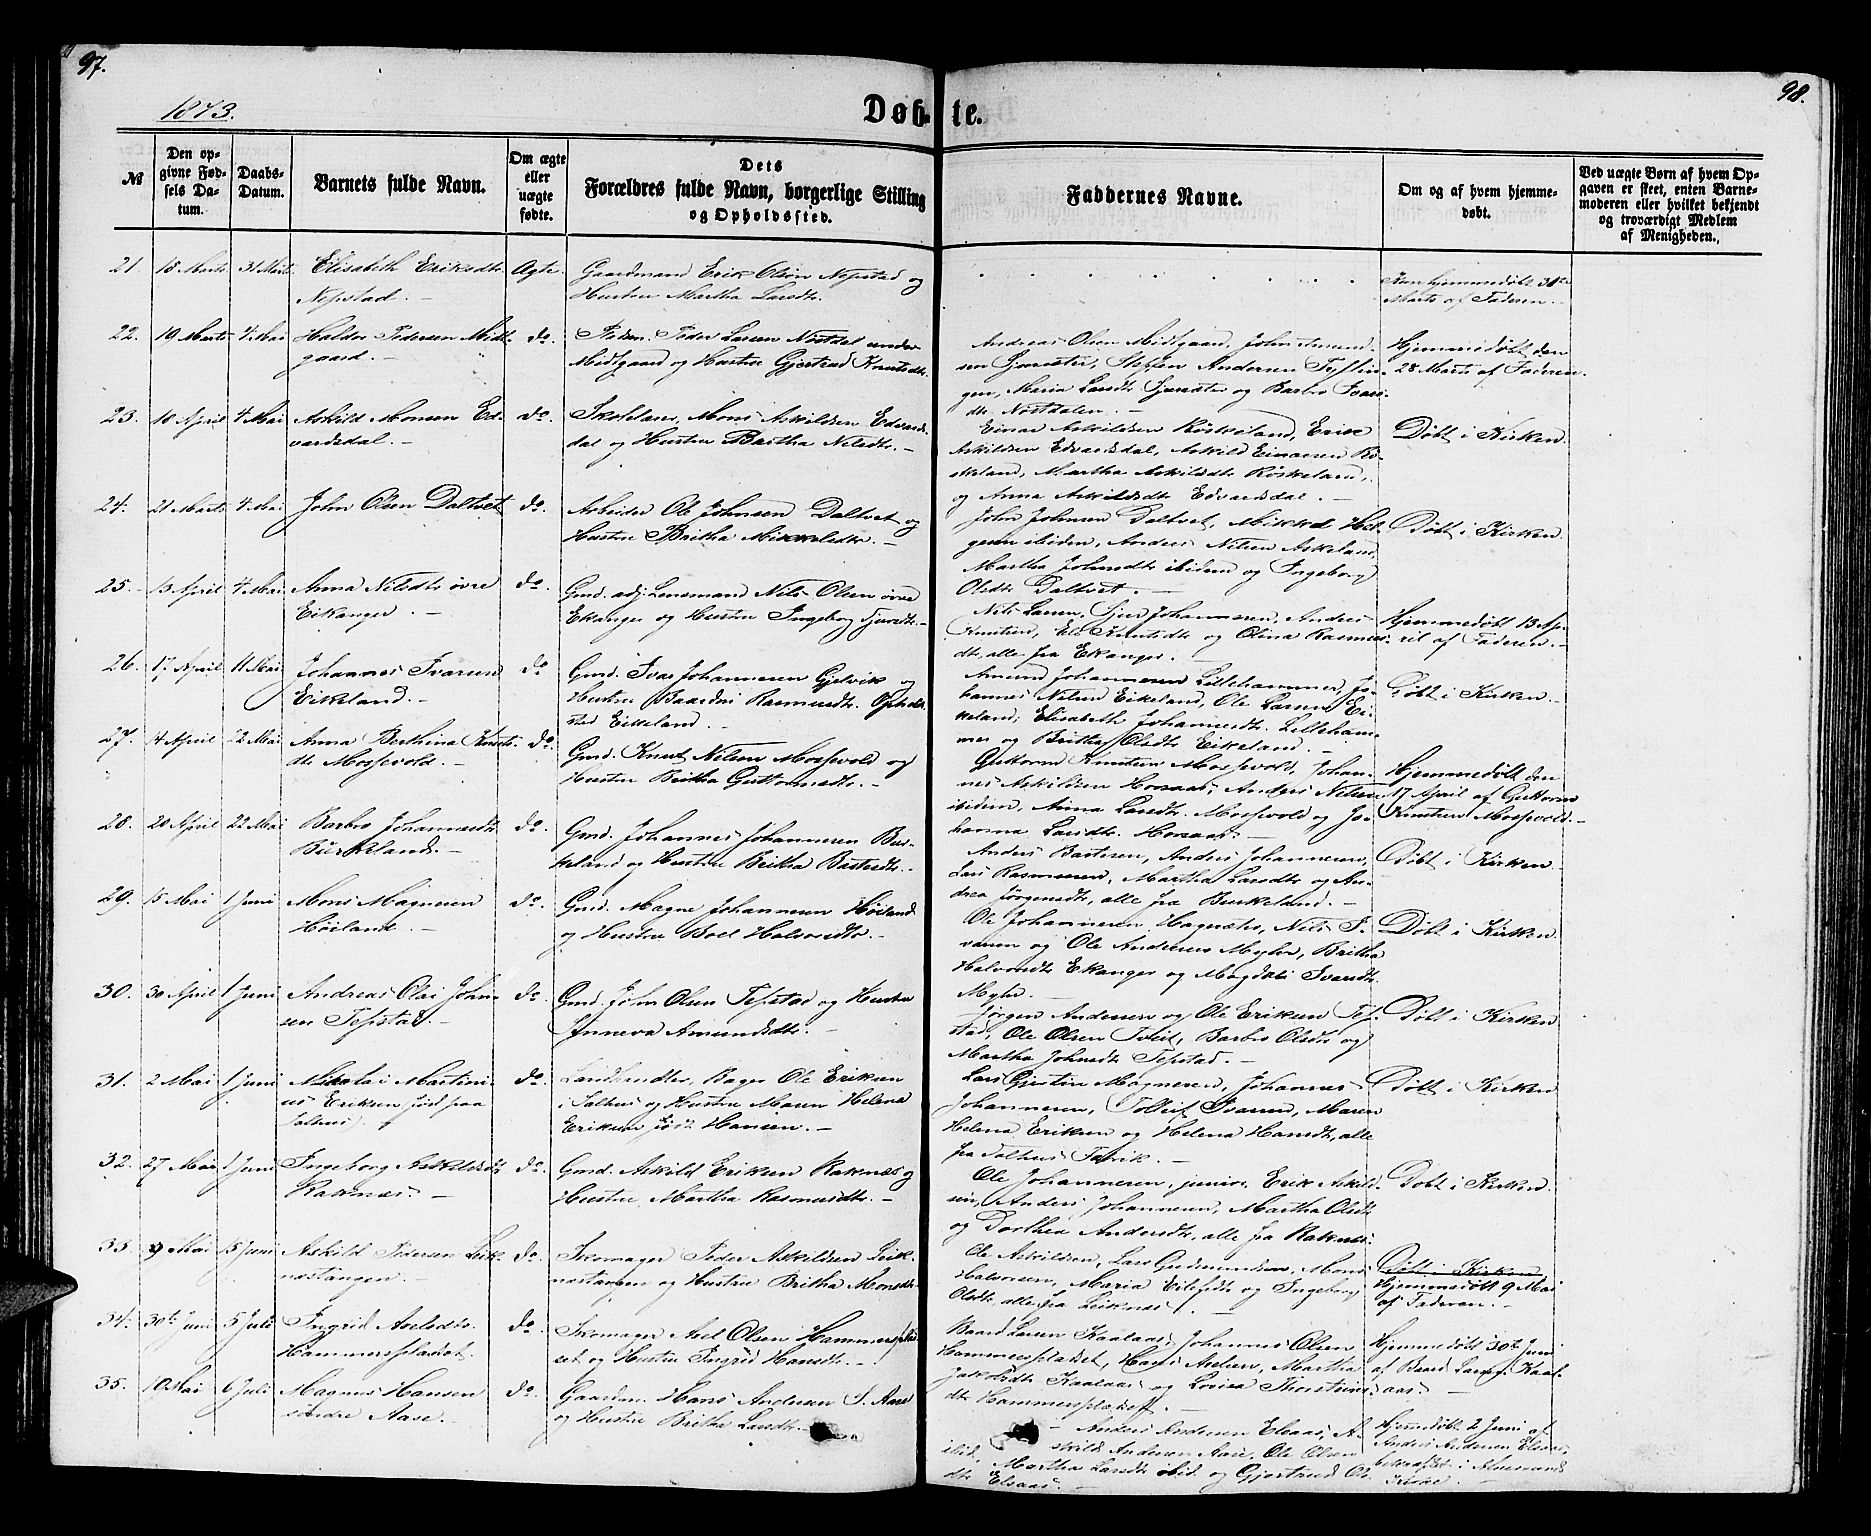 97.
98.
1873.
Døb- te.
№
Den op-
givne Fød-
sels Da-
tum.
Daabs-
Datum.
Barnets fulde Navn.
Om ægte
eller
uægte
fødte.
Dets
Forældres fulde Navn, borgerlige Stilling
og Opholdssted.
Faddernes Navne.
Om og af hvem hjemme-
døbt.
Ved uægte Børn af hvem Op-
gaven er skeet, enten Barne-
moderen eller hvilket bekjendt
og troværdigt Medlem
af Menigheden.
21 18 Marts 31 Marts Elisabeth Eriksdtr. Ægte. Gaardmand Erik Olsen Nepstad og
Nepstad. Hustru Martha Larsdtr.
Kun hjemmedøbt 31te
Marts af Faderen.
22. 19 Marts 4 Mai Haldor Pedersen Midt-
gaard. do. Peder Larsen Nordal under
Midtgaard og Hustru Gjertrud Knutsdtr.
Andreas Olsen Midtgaard, John
Steffen Andersen
Maria Larsdtr og Barbro Ivars-
dtr. Nordalen.
Hjemmedøbt den
28 Marts af Faderen.
23. 10 April 4 Mai Askild Monsen Ed-
vardsdal. do. Skolelærer Mons Askildsen Edvards-
dal og Hustru Britha Nilsdtr.
Einar Askildsen Røskeland, Erik
Askildsen Edvardsdal, Askild Einarsen Rø-
skeland, Martha Askildsdtr Røskeland,
og Anna Askildsdtr Edvardsdal.
Døbt i Kirken.
24. 21 Marts 4 Mai John Olsen Daltvet do. Arbeider Ole Johnsen Daltvet og
Hustru Britha Mikkelsdtr.
John Johnsen Daltvet, Mikkel Hel-
gesen ibidem, Anders Nilsen Askeland,
Martha Johnsdtr ibidem og Ingeborg
Olsdtr Daltvet.
Døbt i Kirken
25. 13 April 4 Mai Anna Nilsdtr øvre
Eikanger. do. Gmd. adj. Lensmand Nils Olsen øvre
Ekanger og Hustru Ingeborg Sjursdtr.
Nils Larsen, Sjur Johannesen, Anders
Knutsen, Eli Knutsdtr og Olina Rasmus-
dtr, alle fra Ekanger.
Hjemmedøbt 13 Ap-
ril af Faderen.
26. 17 April 11 Mai Johannes Ivarsen
Eikeland. do Gmd. Ivar Johannesen Gjelvik og
Hustru Baardni Rasmusdtr. Opholds-
sted Eikeland.
Amund Johannesen Lillehammer, Jo-
hannes Nilsen Eikeland, Ole Larsen Ei-
keland, Elisabeth Johannesdtr. Lilleham-
mer og Britha Olsdtr Eikeland.
Døbt i Kirken.
27. 4 April 22 Mai Anna Berthina Knuts-
dtr Mossevold. do. Gmd. Knut Nilsen Mossevold og
Hustru Britha Guttormsdtr.
Guttorm Knutsen Mossevold, Johan-
nes Askildsen Hovsaas, Anders Nilsen
ibidem, Anna Larsdtr. Mossevold og Jo-
hanna Larsdtr. Hovsaas.
Hjemmedøbt den
17 April af Guttorm
Knutsen Mossevold.
28. 20 April 22 Mai Barbro Johannesdtr
Burkeland. do. Gmd. Johannes Johannesen Bur-
keland og Hustru Britha Bastesdtr.
Anders Bastesen, Anders Johannesen,
Lars Rasmussen, Martha Larsdtr og An-
drea Jørgensdtr, alle fra Burkeland.
Døbt i Kirken.
29. 15 Mai 1 Juni Mons Magnesen
Høiland. do. Gmd. Magne Johannesen Høiland
og Hustru Boel Halvorsdtr.
Ole Johannesen Hageseter, Nils I-
varsen og Ole Andersen Myhr, Britha
Halvorsdtr Ekanger og Magdali Ivarsdtr.
Myhr.
Døbt i Kirken
30. 30 April 1 Juni Andreas Olai John-
sen Tepstad. do. Gmd. John Olsen Tepstad og Hustru
Synneva Amundsdtr.
Jørgen Andersen og Ole Eriksen Tep-
stad, Ole Olsen Tveit, Barbro Olsdtr og
Martha Johnsdtr Tepstad.
Døbt i Kirken
31. 2 Mai 1 Juni Nikolai Martini-
us Eriksen født paa
Salhus. do. Landhandler, Bager Ole Eriksen
i Salhus og Hustru Maren Helena
Eriksen født Hansen.
Lars Gjertin Magnesen, Johannes
Johannesen, Tolleif Ivarsen, Maren
Helena Eriksen og Helena Hansdtr, alle
fra Salhus Fabrik.
Døbt i Kirken
32. 27 Mai 1 Juni Ingeborg Askildsdtr
Raknes. do. Gmd. Askild Eriksen Raknes og
Hustru Martha Rasmusdtr.
Ole Johannesen, junior, Erik Askild-
sen, Anders Johannesen, Martha Olsdtr
og Dorthea Andersdtr, alle fra Raknes.
Døbt i Kirken.
33. 9 Mai 15 Juni Askild Pedersen Leik-
nestangen. do. Skomager Peder Askildsen Leik-
nestangen og Hustru Britha Monsdtr.
Ole Askildsen, Lars Gudmundsen, Mons
Halvorsen, Maria Eilefsdtr og Ingeborg
Olsdtr, alle fra Leiknes.
Døbt i Kirken
Hjemmedøbt 9 Mai
af Faderen.
34. 30te Juni 5 Juli Ingrid Axelsdtr.
Hammerspladset. do. Skomager Axel Olsen Hammersplad-
set og Hustru Ingrid Hansdtr.
Baard Larsen Kaalaas, Johannes Olsen
Hammerspladset, Hans Axelsen, Martha
Jakobsdtr Kaalaas og Lovisa Thorsteins-
dtr Hammerspladset.
Hjemmedøbt 30te Juni
af Baard Larsen Kaal-
aas.
35. 10 Mai 6 Juli Magnes Hansen
søndre Aase. do. Gaardm. Hans Andersen S. Aase
og Hustru Britha Larsdtr.
Anders Andersen Elsaas, A-
skild Andersen Aase, Ole Olsen
ibid, Martha Larsdtr ibid. og Gjertrud Ols-
dtr Elsaas.
Hjemmedøbt 2 Juni af
Anders Andersen Elsaas,
bekræftet i Alversund
Kirke.